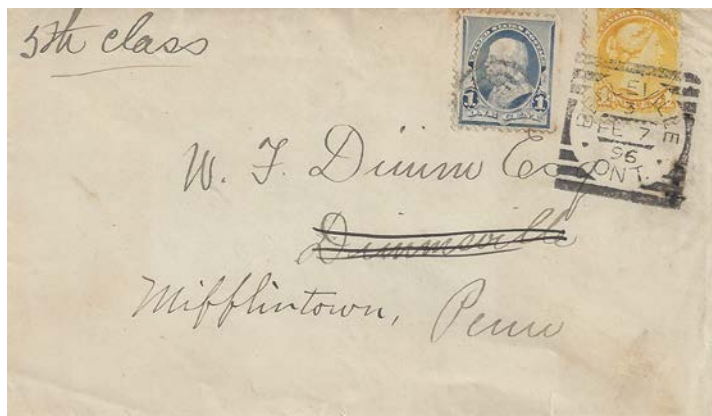 5th class
UNITED STATES POSTAGE
1 1
ONE CENT
CANADA POSTAGE
FE 7
96
ONT.
W. F. Dimm Esq
Dimmsville
Mifflintown, Penn